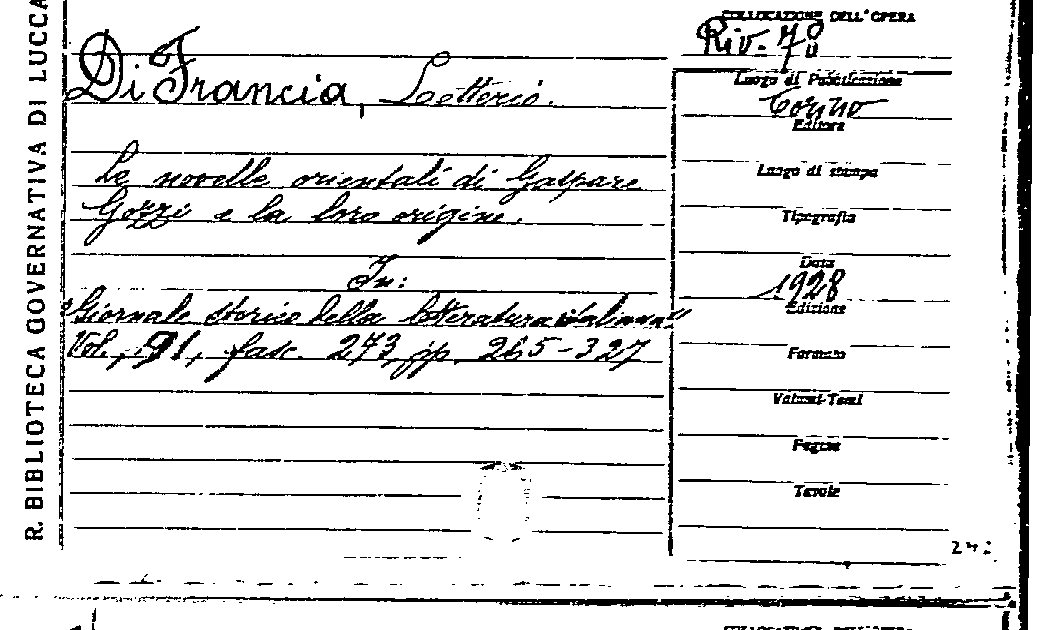 R. BIBLIOTECA GOVERNATIVA DI LUCCA
COLLOCAZIONE DELL'OPERA
Riv. 78
Di Francia, Letterio.
Le novelle orientali di Gaspare
Gozzi e la loro origine.
In:
"Giornale storico della letteratura italiana"
Vol. 91, fasc. 273, pp. 265-327
Luogo di Pubblicazione
Torino
Editore
Luogo di stampa
Tipografia
Data
1928
Edizione
Formato
Volumi-Tomi
Pagine
Tavole
COLLOCAZIONE DELL'OPERA